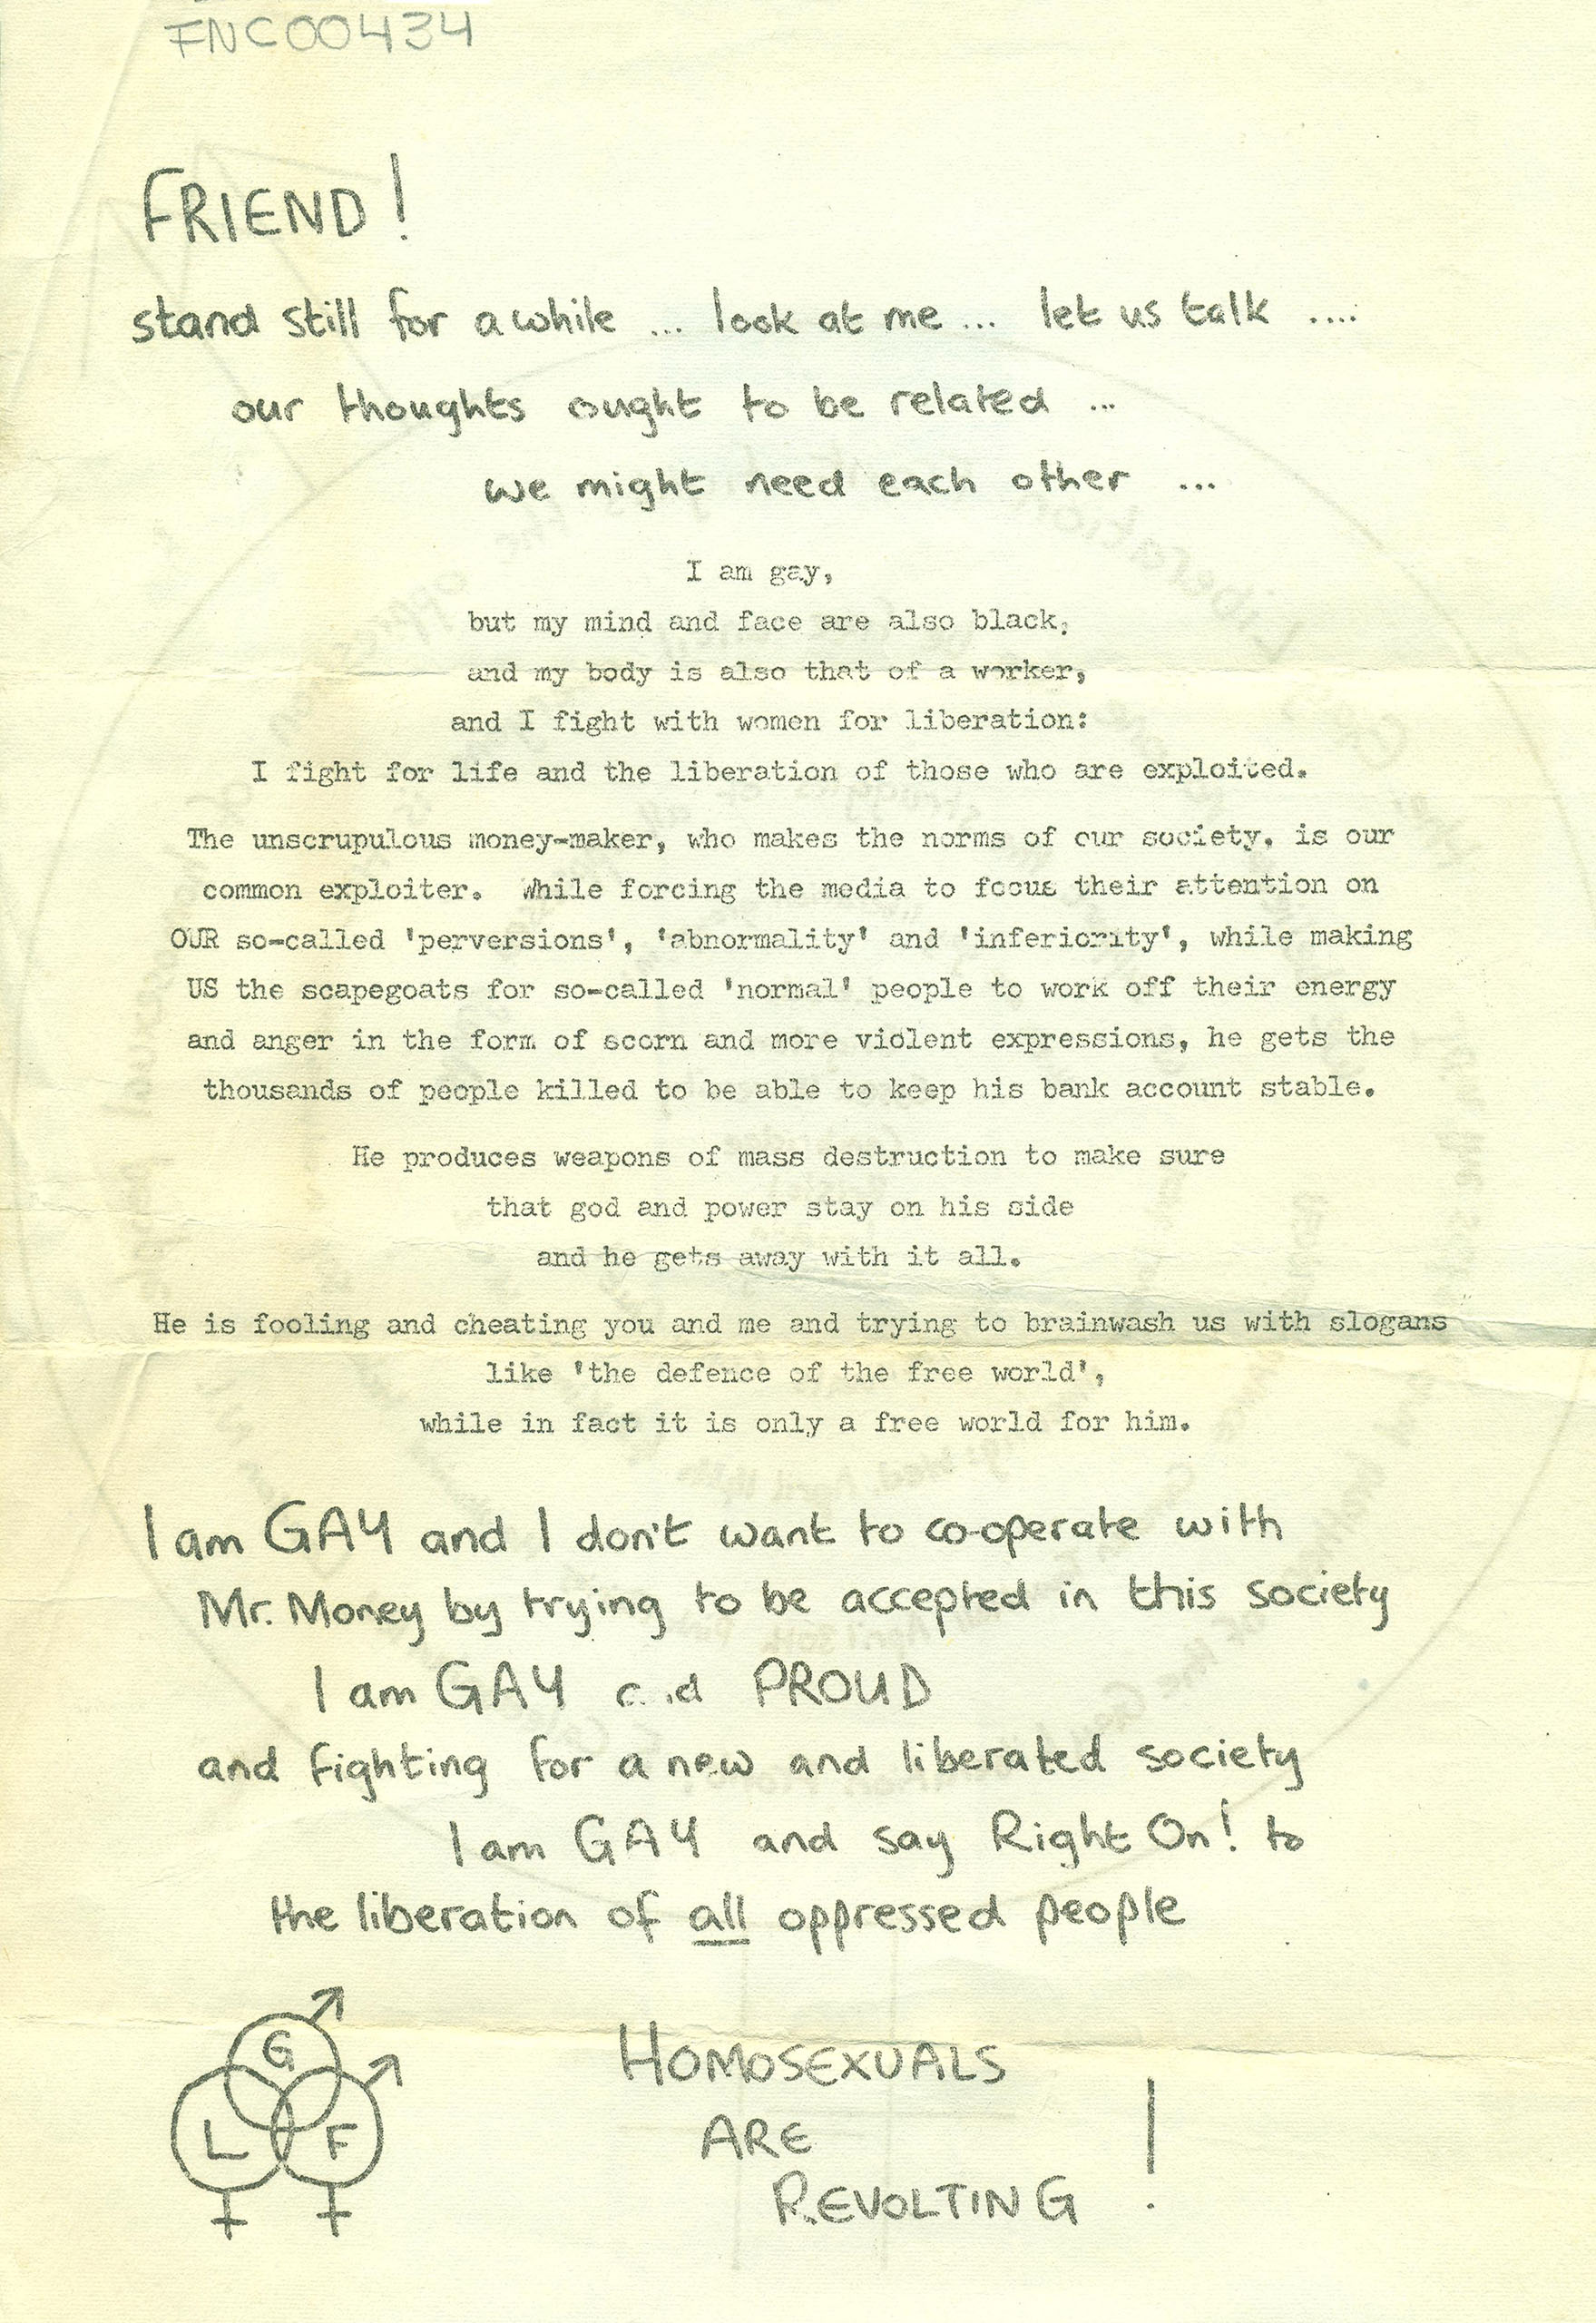 FNC00434
FRIEND!
stand still for a while ... look at me ... let us talk ....
our thoughts ought to be related ...
we might need each other ...
I am gay,
but my mind and face are also black,
and my body is also that of a worker,
and I fight with women for liberation:
I fight for life and the liberation of those who are exploited.
The unscrupulous money-maker, who makes the norms of our society, is our
common exploiter. While forcing the media to focus their attention on
OUR so-called 'perversions', 'abnormality' and 'inferiority', while making
US the scapegoats for so-called 'normal' people to work off their energy
and anger in the form of scorn and more violent expressions, he gets the
thousands of people killed to be able to keep his bank account stable.
He produces weapons of mass destruction to make sure
that god and power stay on his side
and he gets away with it all.
He is fooling and cheating you and me and trying to brainwash us with slogans
like 'the defence of the free world',
while in fact it is only a free world for him.
I am GAY and I don't want to co-operate with
Mr. Money by trying to be accepted in this society
I am GAY and PROUD
and fighting for a new and liberated society
I am GAY and say Right On! to
the liberation of all oppressed people
G
L F
HOMOSEXUALS
ARE
REVOLTING !